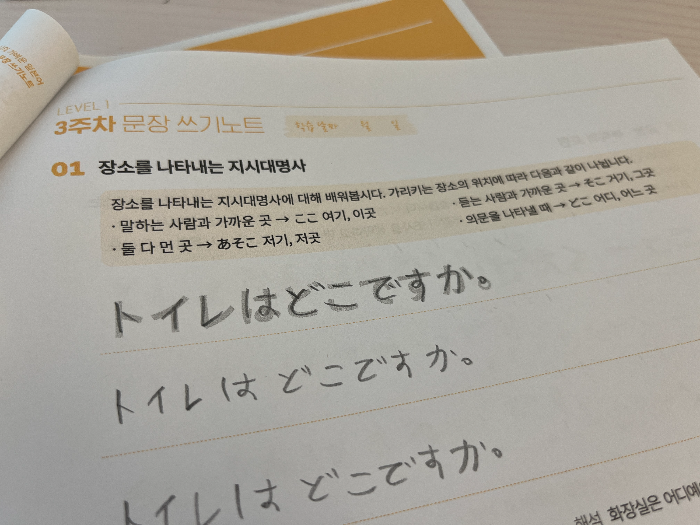 LEVEL 1
3주차 문장 쓰기노트
월 일
01 장소를 나타내는 지시대명사
장소를 나타내는 지시대명사에 대해 배워봅시다. 가리키는 장소의 위치에 따라 다음과 같이 나뉩니다.
· 말하는 사람과 가까운 곳 → ここ 여기, 이곳
· 듣는 사람과 가까운 곳 → そこ 거기, 그곳
· 둘 다 먼 곳 → あそこ 저기, 저곳
· 의문을 나타낼 때 → どこ 어디, 어느 곳
トイレはどこですか。
トイレは どこですか。
トイレは どこですか。
해석 화장실은 어디예